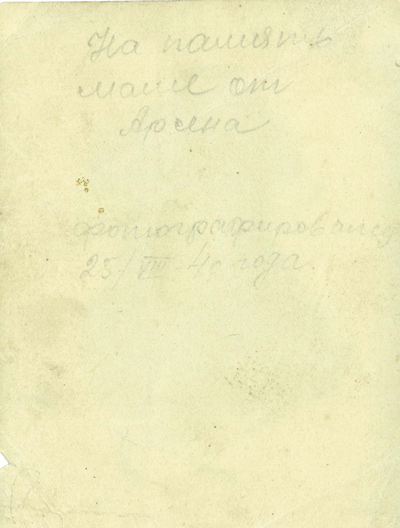 На память
маше от
Арсена
фотографировался
25/VIII 40 года.